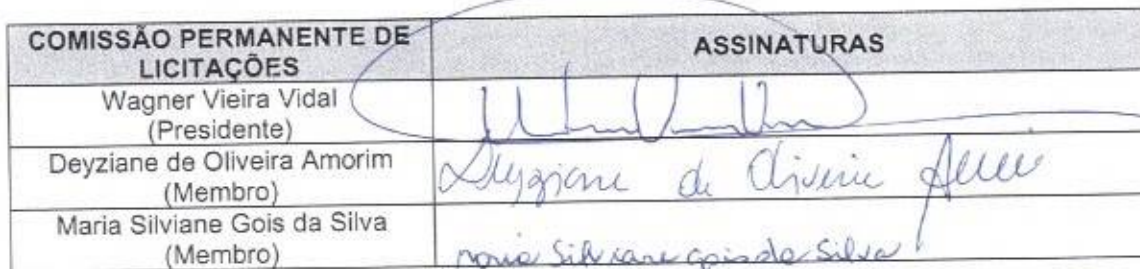 COMISSÃO PERMANENTE DE
LICITAÇÕES
ASSINATURAS
Wagner Vieira Vidal
(Presidente)
Deyziane de Oliveira Amorim
(Membro)
Deyziane de Oliveira
Maria Silviane Gois da Silva
(Membro)
Maria Silviane Gois da Silva